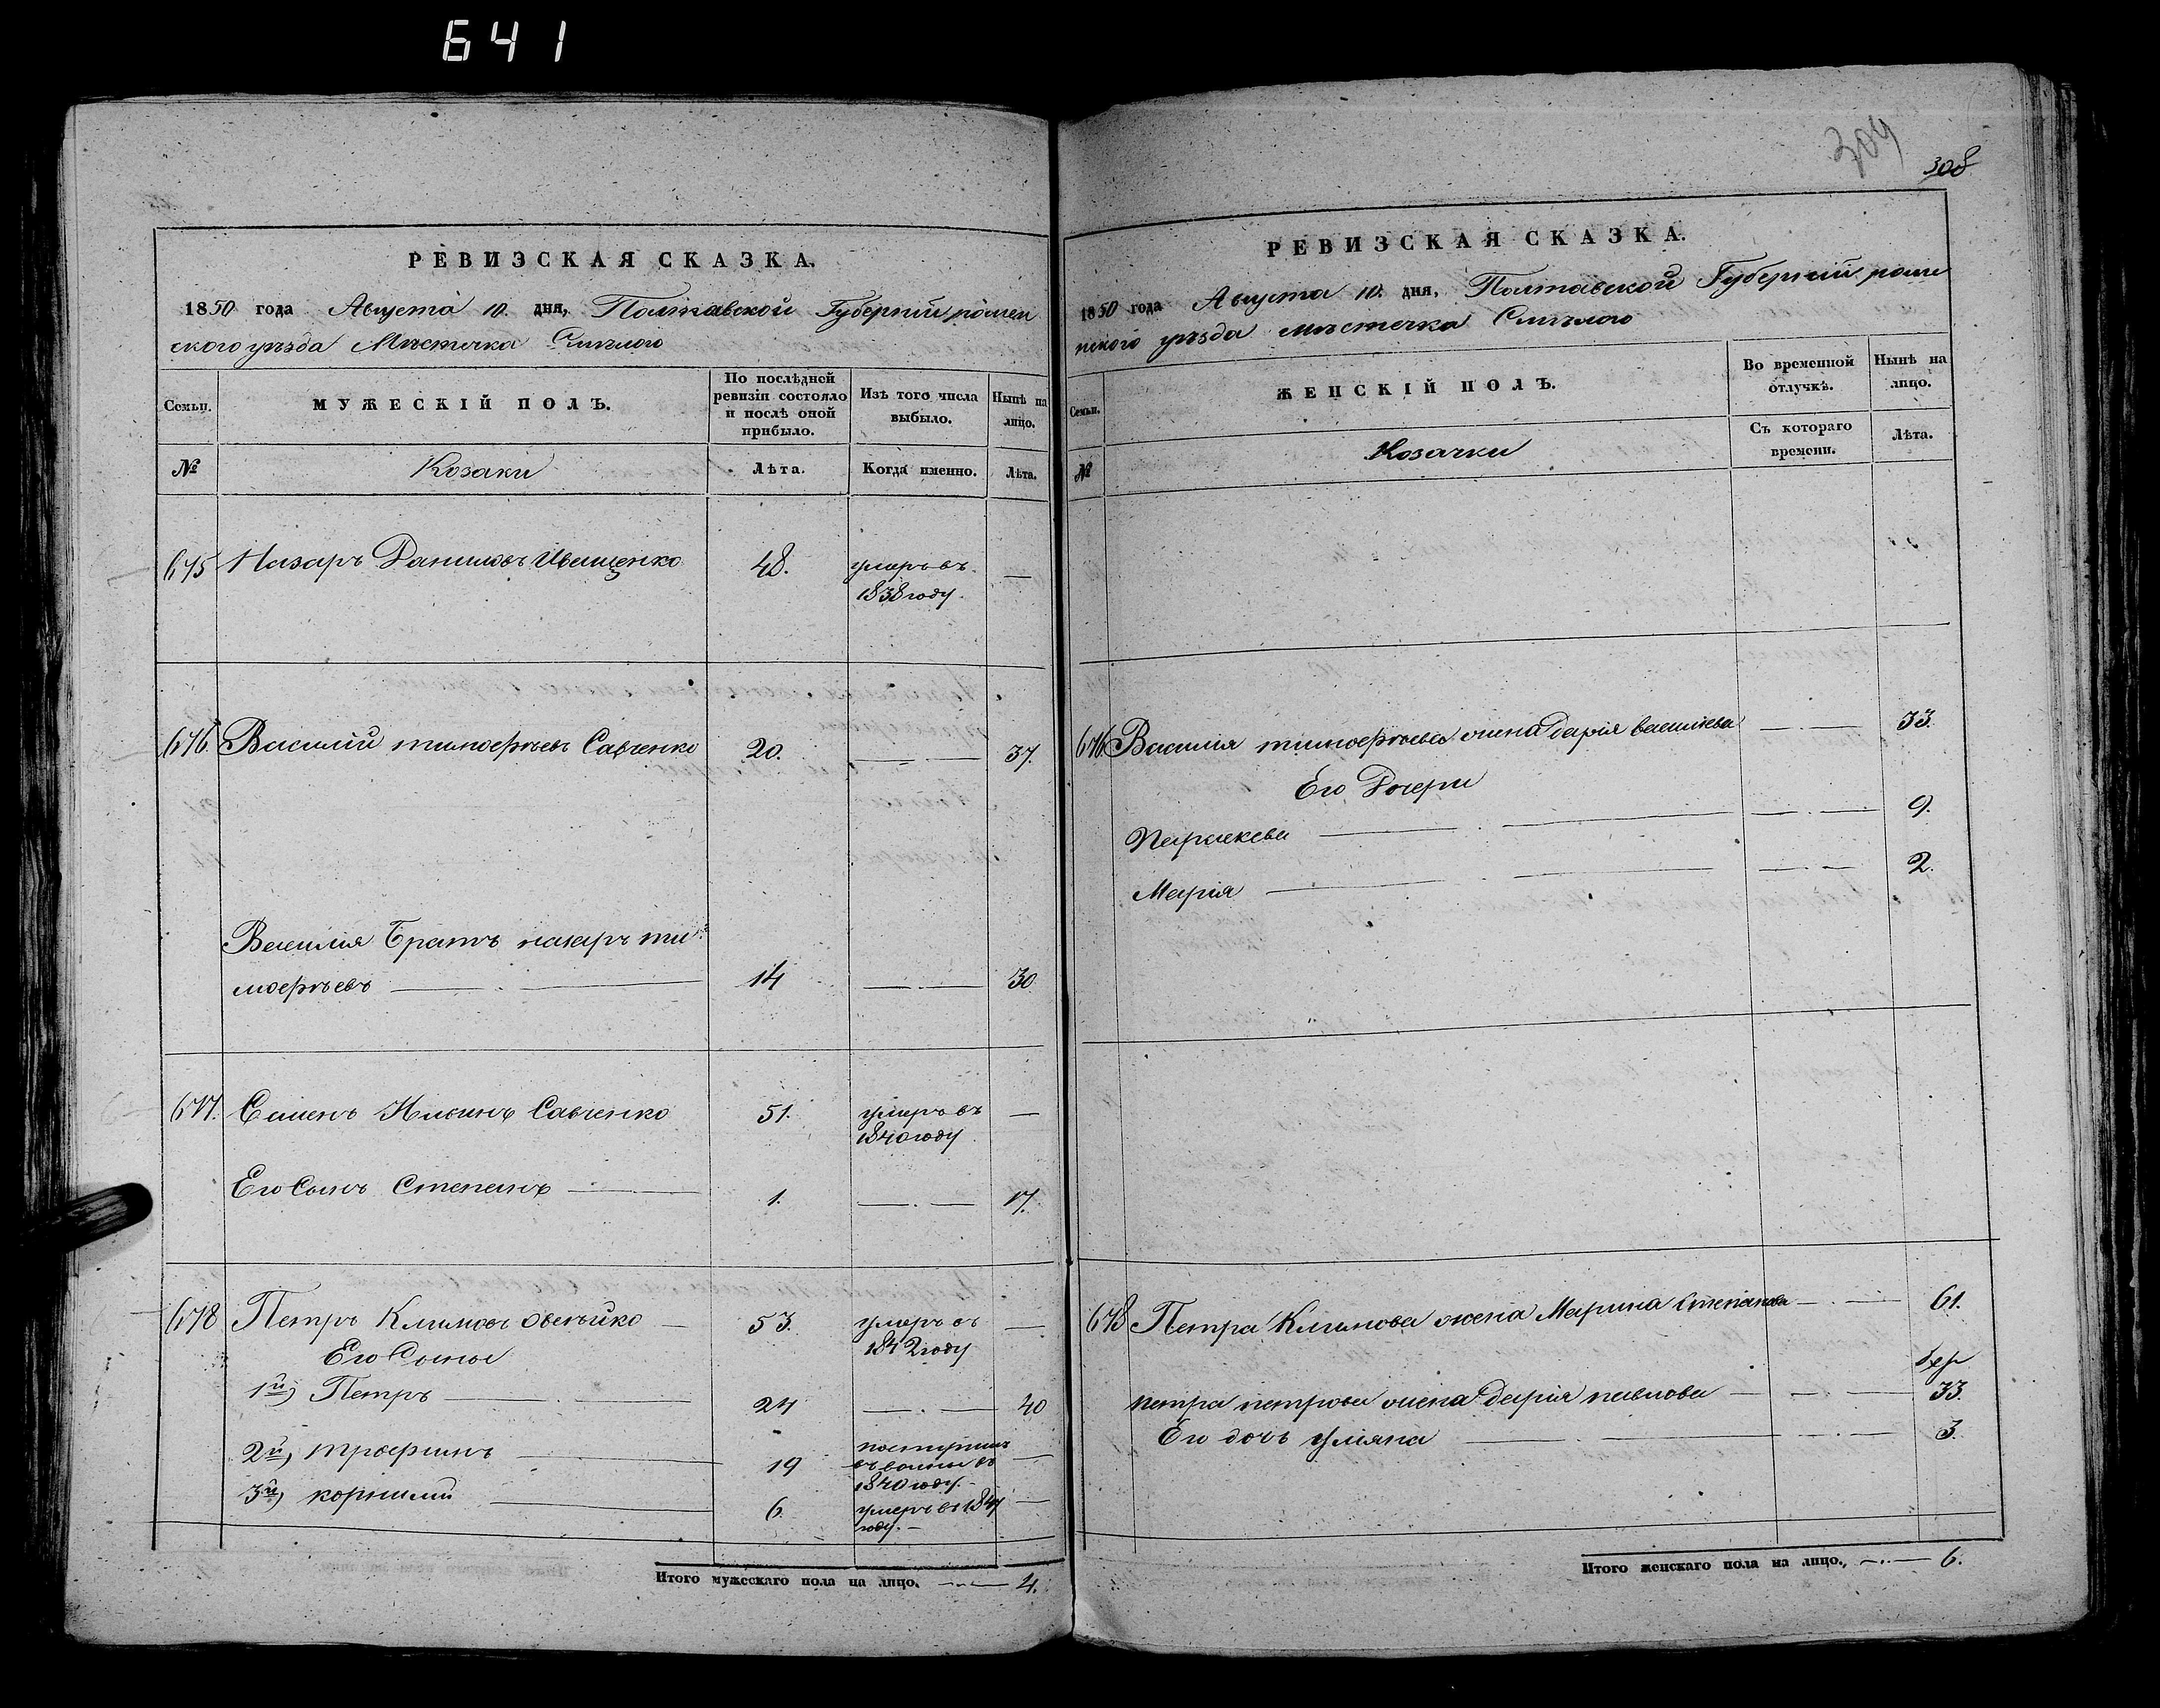 641
РЕВИЗСКАЯ СКАЗКА.
1850 года Августа 10. дня, Полтавской Губерніи ромен
ского уѣзда Мѣстечка Смѣлого
Семьи.
МУЖЕСКІЙ ПОЛЪ.
По послѣдней ревизіи состояло и послѣ оной прибыло.
Изъ того числа выбыло.
Нынѣ на лицо.
№
Козаки
Лѣта.
Когда именно.
Лѣта.
675 Назаръ Даниловъ Иващенко 48. умеръ въ —
1838 году.
676. Василій тимофѣевъ Савченко 20. —.— 37.
Василія Братъ назаръ ти
мофѣевъ —.— 14 —.— 30
677. Семенъ Ильинъ Савченко 51. умеръ въ —
1840 году
Его Сынъ Степанъ — 1. —.— 17.
678 Петръ Климовъ — 53. умеръ въ —
Его Сыны 1842 году
1й) Петръ —.— 24 —.— 40
2й) трофимъ — 19 поступилъ —
въ въ
1840 году.
3й) корнилій — 6. умеръ въ 1847 —
году. —
Итого мужескаго пола на лицо. —..— 4.
304
308
РЕВИЗСКАЯ СКАЗКА.
1850 года Августа 10. дня, Полтавской Губерніи роме
нского уѣзда мѣстечка Смѣлого
Семьи.
ЖЕНСКІЙ ПОЛЪ.
Во временной отлучкѣ.
Нынѣ на лицо.
№
Козачки
Съ котораго времени.
Лѣта.
676. Василія тимофѣева жена дарія василева —.— 33.
Его Дочери
Параскева —.— —.— 9.
Марія —.— —.— 2.
678 Петра Климова жена Марина Степанова —.— 61.
петра петрова жена дарія павлова —.— 33.
Его дочь уліяна —.— —.— 3.
Итого женскаго пола на лицо., —..— 6.